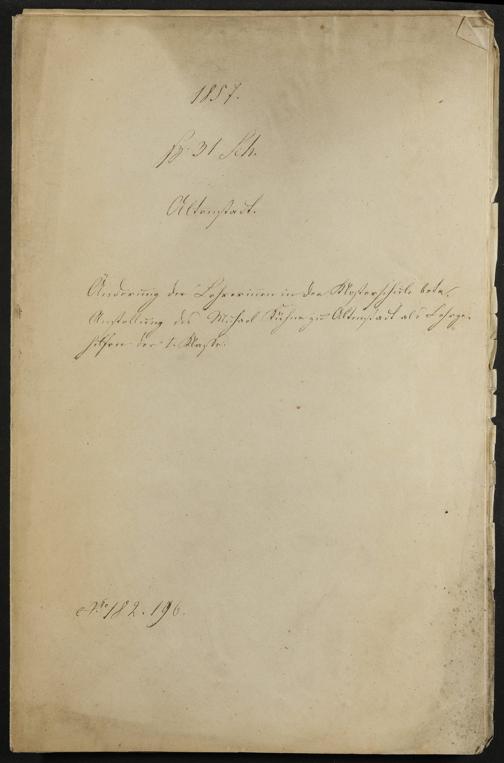 1857.
31 Sch.
Altenstadt.
Änderung der Lehrerinnen in der Klosterschule betr.
Anstellung des Michael Kühne zu Altenstadt als Lehrge-
hilfen der 1. Klasse.
No 182. 196.